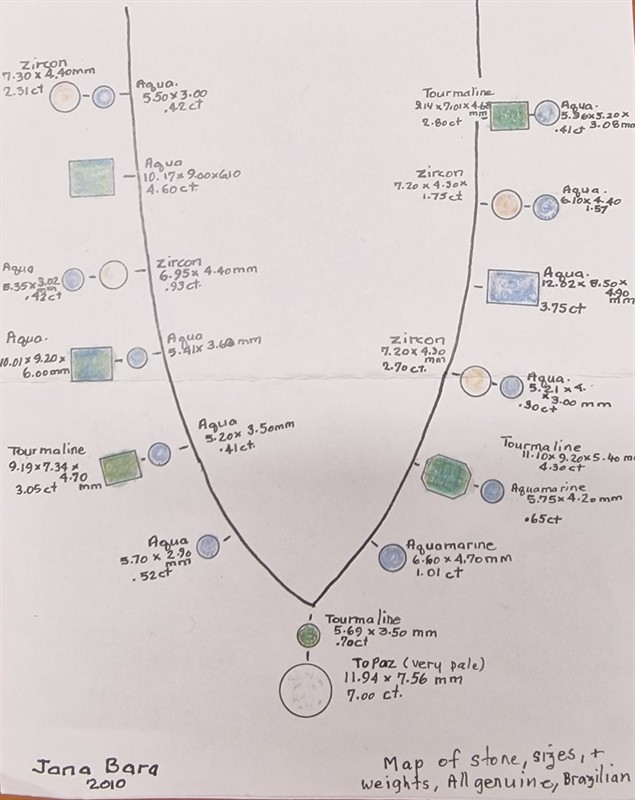 Zircon
7.30 x 4.40mm
2.31ct
Aqua.
5.50 x 3.00
.42ct
Aqua
10.17 x 9.00 x 6.10
4.60 ct.
Aqua
5.35 x 3.02
mm
.42ct
Zircon
6.95 x 4.40mm
.93ct.
Aqua.
10.01 x 9.20 x
6.00mm
Aqua
5.41 x 3.60 mm
Aqua
5.20 x 3.50mm
.41ct.
Tourmaline
9.19 x 7.34 x
4.70
mm
3.05 ct
Aqua
5.70 x 2.90
mm
.52ct
Tourmaline
9.14 x 7.01 x 4.68
mm
2.80ct
Aqua.
5.36 x 5.20 x
3.08mm
.41ct
Zircon
7.20 x 4.30 x
1.75ct
Aqua.
6.10 x 4.40
1.57
Aqua.
12.82 x 8.50 x
4.90
mm
3.75 ct
Zircon
7.20 x 4.30
mm
2.70 ct.
Aqua.
5.21 x 4.
x 3.00 mm
.30ct
Tourmaline
11.10 x 9.20 x 5.40 m
4.30 ct
Aquamarine
5.75 x 4.20mm
.65ct
Aquamarine
6.60 x 4.70mm
1.01 ct
Tourmaline
5.69 x 3.50 mm
.70ct
Topaz (very pale)
11.94 x 7.56 mm
7.00 ct.
Jana Bara
2010
Map of stone, sizes, +
weights, All genuine, Brazilian